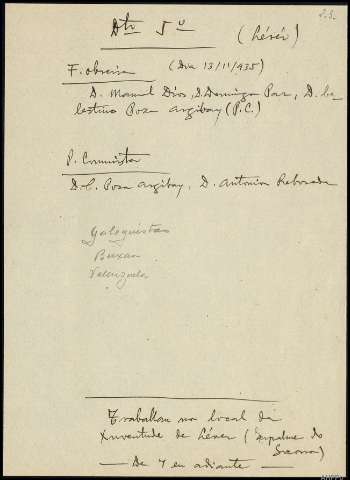 Dto 5º (Lérez)
F. obreira (Dia 13/11/935)
D. Manuel Dios, D. Domingo Paz, D. Ce
lestino Poza Argibay (P.C.)
P. Comunista
D. C. Poza Argibay, D. Antonio Reboredo
Galeguistas
Buxan
Valenzuela
Traballan no local da
Xuventude de Lérez ( do
)
— De 7 en adiante —